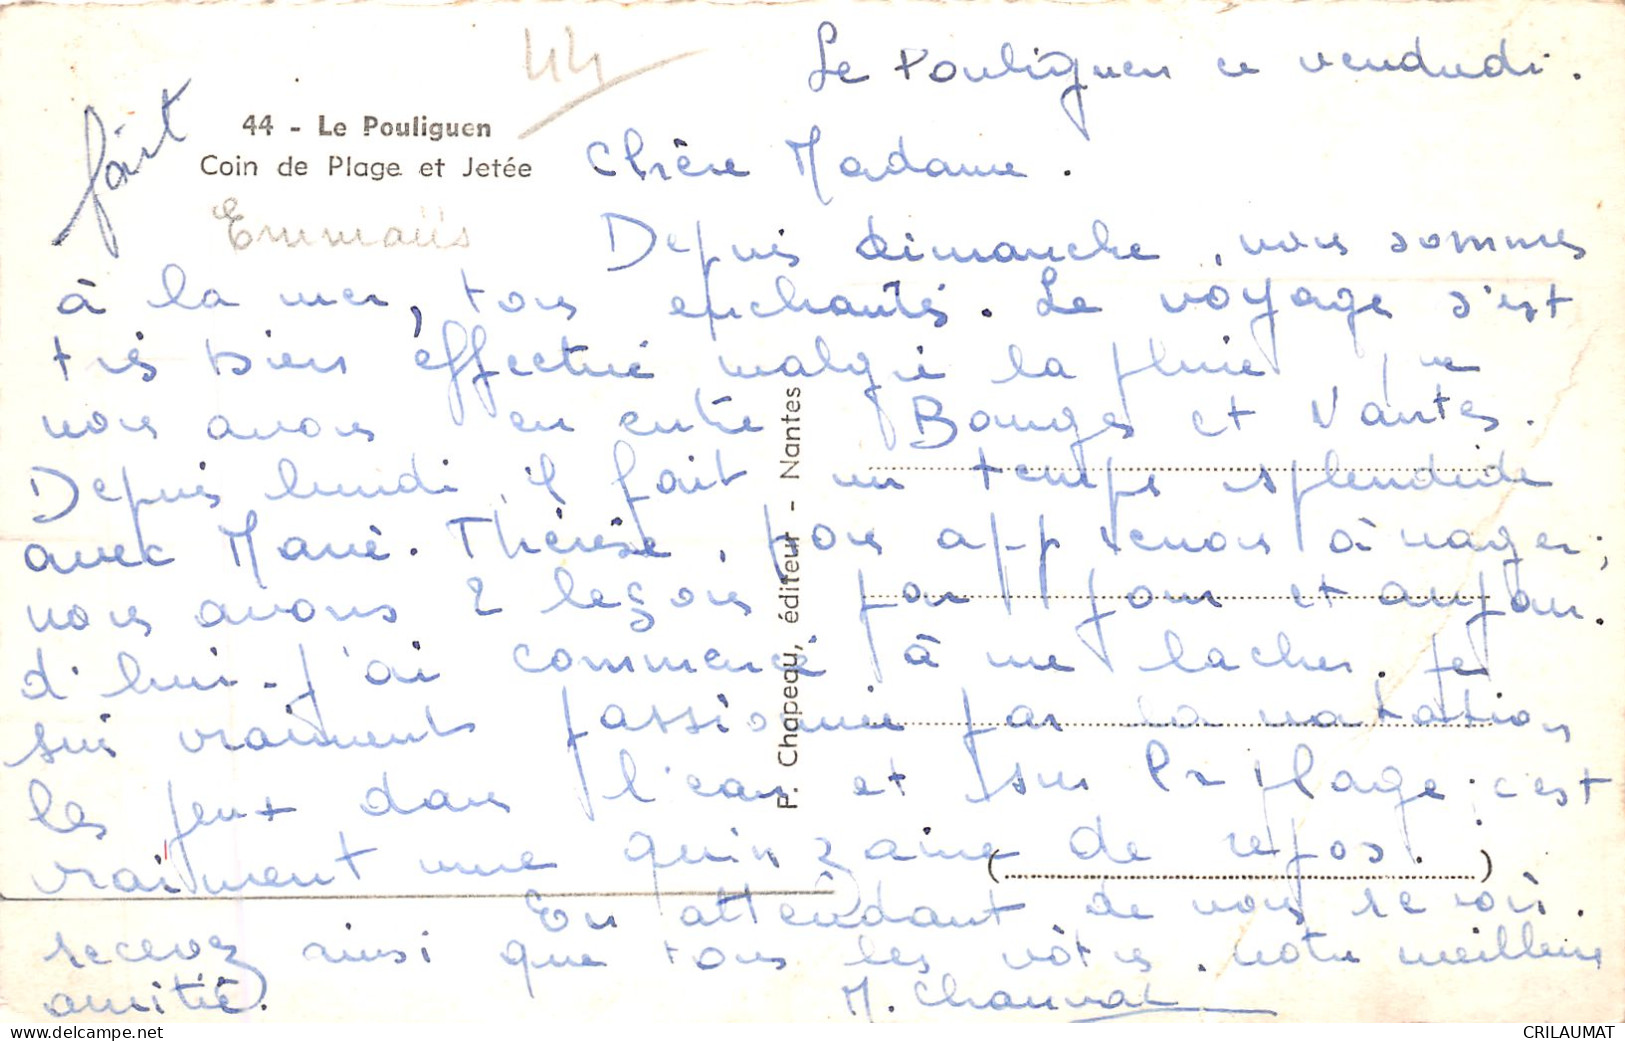 44
Le Pouliguen ce vendredi.
fait
44 - Le Pouliguen
Coin de Plage et Jetée
Emmaüs
Chère Madame.
Depuis dimanche, nous sommes
à la mer, tous enchantés. Le voyage s'est
très bien effectué malgré la pluie que
nous avons eu entre Bourges et Nantes.
Depuis lundi, il fait un temps splendide
avec Marie-Thérèse, nous apprenons à nager;
nous avons 2 leçons par jour et aujour-
d'hui j'ai commencé à me lacher. Je
suis vraiment passionnée par la natation
les jeux dans l'eau et sur la plage; c'est
vraiment une quinzaine de repos.
En attendant de vous revoir.
recevez ainsi que tous les vôtres, notre meilleure
amitié.
M. Chauvat
P. Chapeau, éditeur - Nantes
(
)
delcampe.net
CRILAUMAT